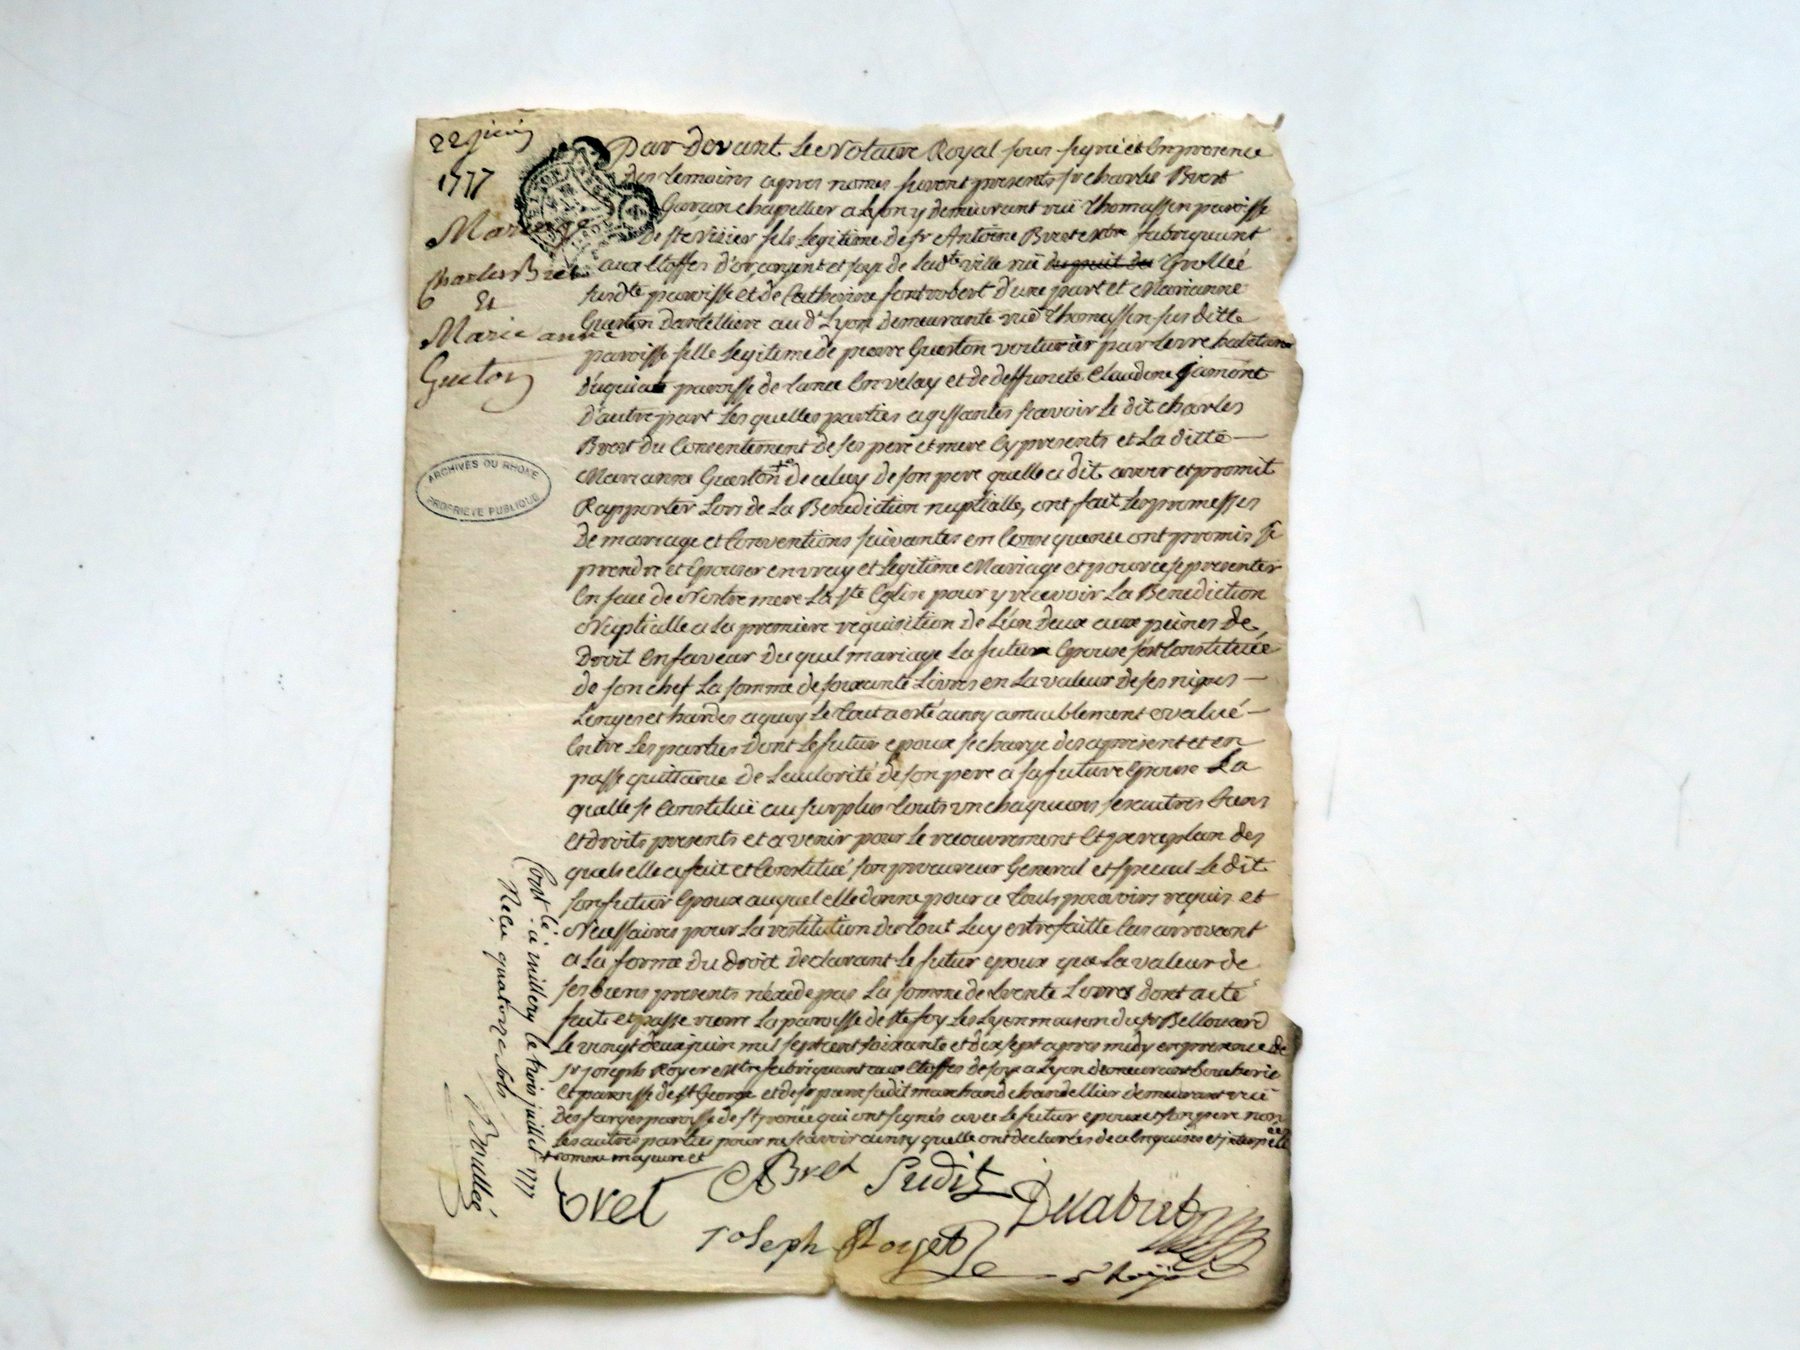 22 juin
1777
Mariage
Charles Bret
Et
Marie anne
Gueton
ARCHIVES DU RHONE
PROPRIETE PUBLIQUE
Par Devant Le Notaire Royal sous signé et En presence
Des temoins apres només furent presents sr charles Bret
Garçon chapellier a Lyon y demeurant ruë Thomassin paroisse
De st Nisier fils Legitime de sr Antoine Bret fabriquant
aux Etoffes d'or, argent et soye de Ladte ville ruë du puit du Grollée
susdte paroisse et de Catherine d'une part et Marianne
Gueton Dantelliere aud Lyon demeurante ruë Thomassin susditte
paroisse fille Legitime de pierre Gueton voiturier par terre habitant
paroisse de En velay et de deffuncte Claudine Jamont
D'autre part Les quelles parties agissantes scavoir Le dit charles
Bret du Consentement de ses pere et mere Cy presents et La ditte
Marianne Gueton de celuy de son pere quelle a dit avoir et promit
Rapporter Lors de La Benediction nuptialle, ont fait Les promesses
De mariage et Conventions suivantes en Consequence ont promis se
prendre et Epouser en vray et Legitime Mariage et pour ce se presenter
En face de Nostre mere La ste Eglise pour y recevoir La Benediction
Nuptialle a La premiere requisition de L'un deux aux peines de
Droit En faveur Du quel mariage La future Epouse s'est Constituée
de son chef La somme de soixante Livres en La valeur de ses nipes
Linges et hardes a quoy Le tout a esté ainsy amiablement evalué
Entre Les parties Dont Le futur epoux se charge des apresent et en
passe quittance De Lautorité de son pere a sa future Epouse La
quelle se Constitue au surplus touts un chaquuns ses autres biens
et droits presents et a venir pour Le recouvrement Et des
quels elle a fait et Constitué son procureur General et special Le dit
son futur Epoux auquel elle donne pour ce touts pouvoirs requis et
Necessaires pour La restitution du tout Luy estre faitte Cas arrivant
a La forme Du Droit Declarant Le futur epoux que La valeur de
ses biens presents n'exede pas La somme de trente Livres dont acte
fait et passé La paroisse de ste foy Les Lyon maison du sr Bellouard
Le vingt deux juin mil sept cent soixante et dix sept apres midy en presence de
sr joseph Royer fabriquant aux Etoffes de soye a Lyon demeurant boucherie
Et paroisse de st George et de sr pierre sudit marchand chandellier demeurant ruë
Des farges paroisse de st irenée qui ont signés avec Le futur epoux et son pere non
Les autres parties pour ne scavoir ainsy quelle ont declarées de ce Enquises et
+ comme majeure et
Bret
ABret
Sudit
Ducabriet
Joseph Royet
Cont.lé à millery le trois juillet 1777
Reçu quatorze sols
Brullée